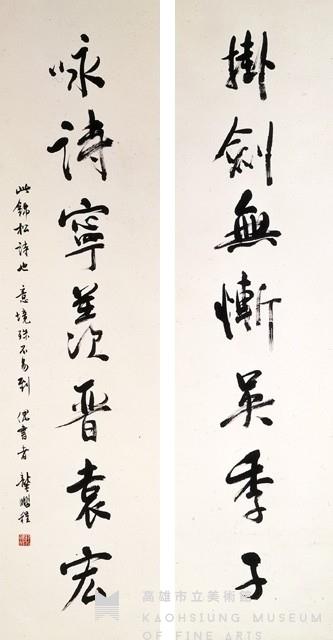 掛劍無慚吳季子
咏詩寧羨晉袁宏
此錦松詩也 意境殊不易到 偶書者 龔鵬程
高雄市立美術館
KAOHSIUNG MUSEUM
OF FINE ARTS